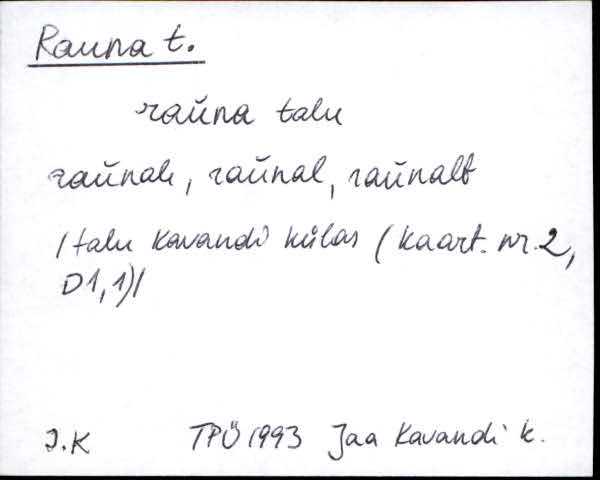 Rauna t.
raŭna talu
raŭnale, raŭnal, raŭnalt
/talu Kavandi külas (kaart. nr. 2,
D1,1)/
J.K TPÜ 1993 Jaa Kavandi k.